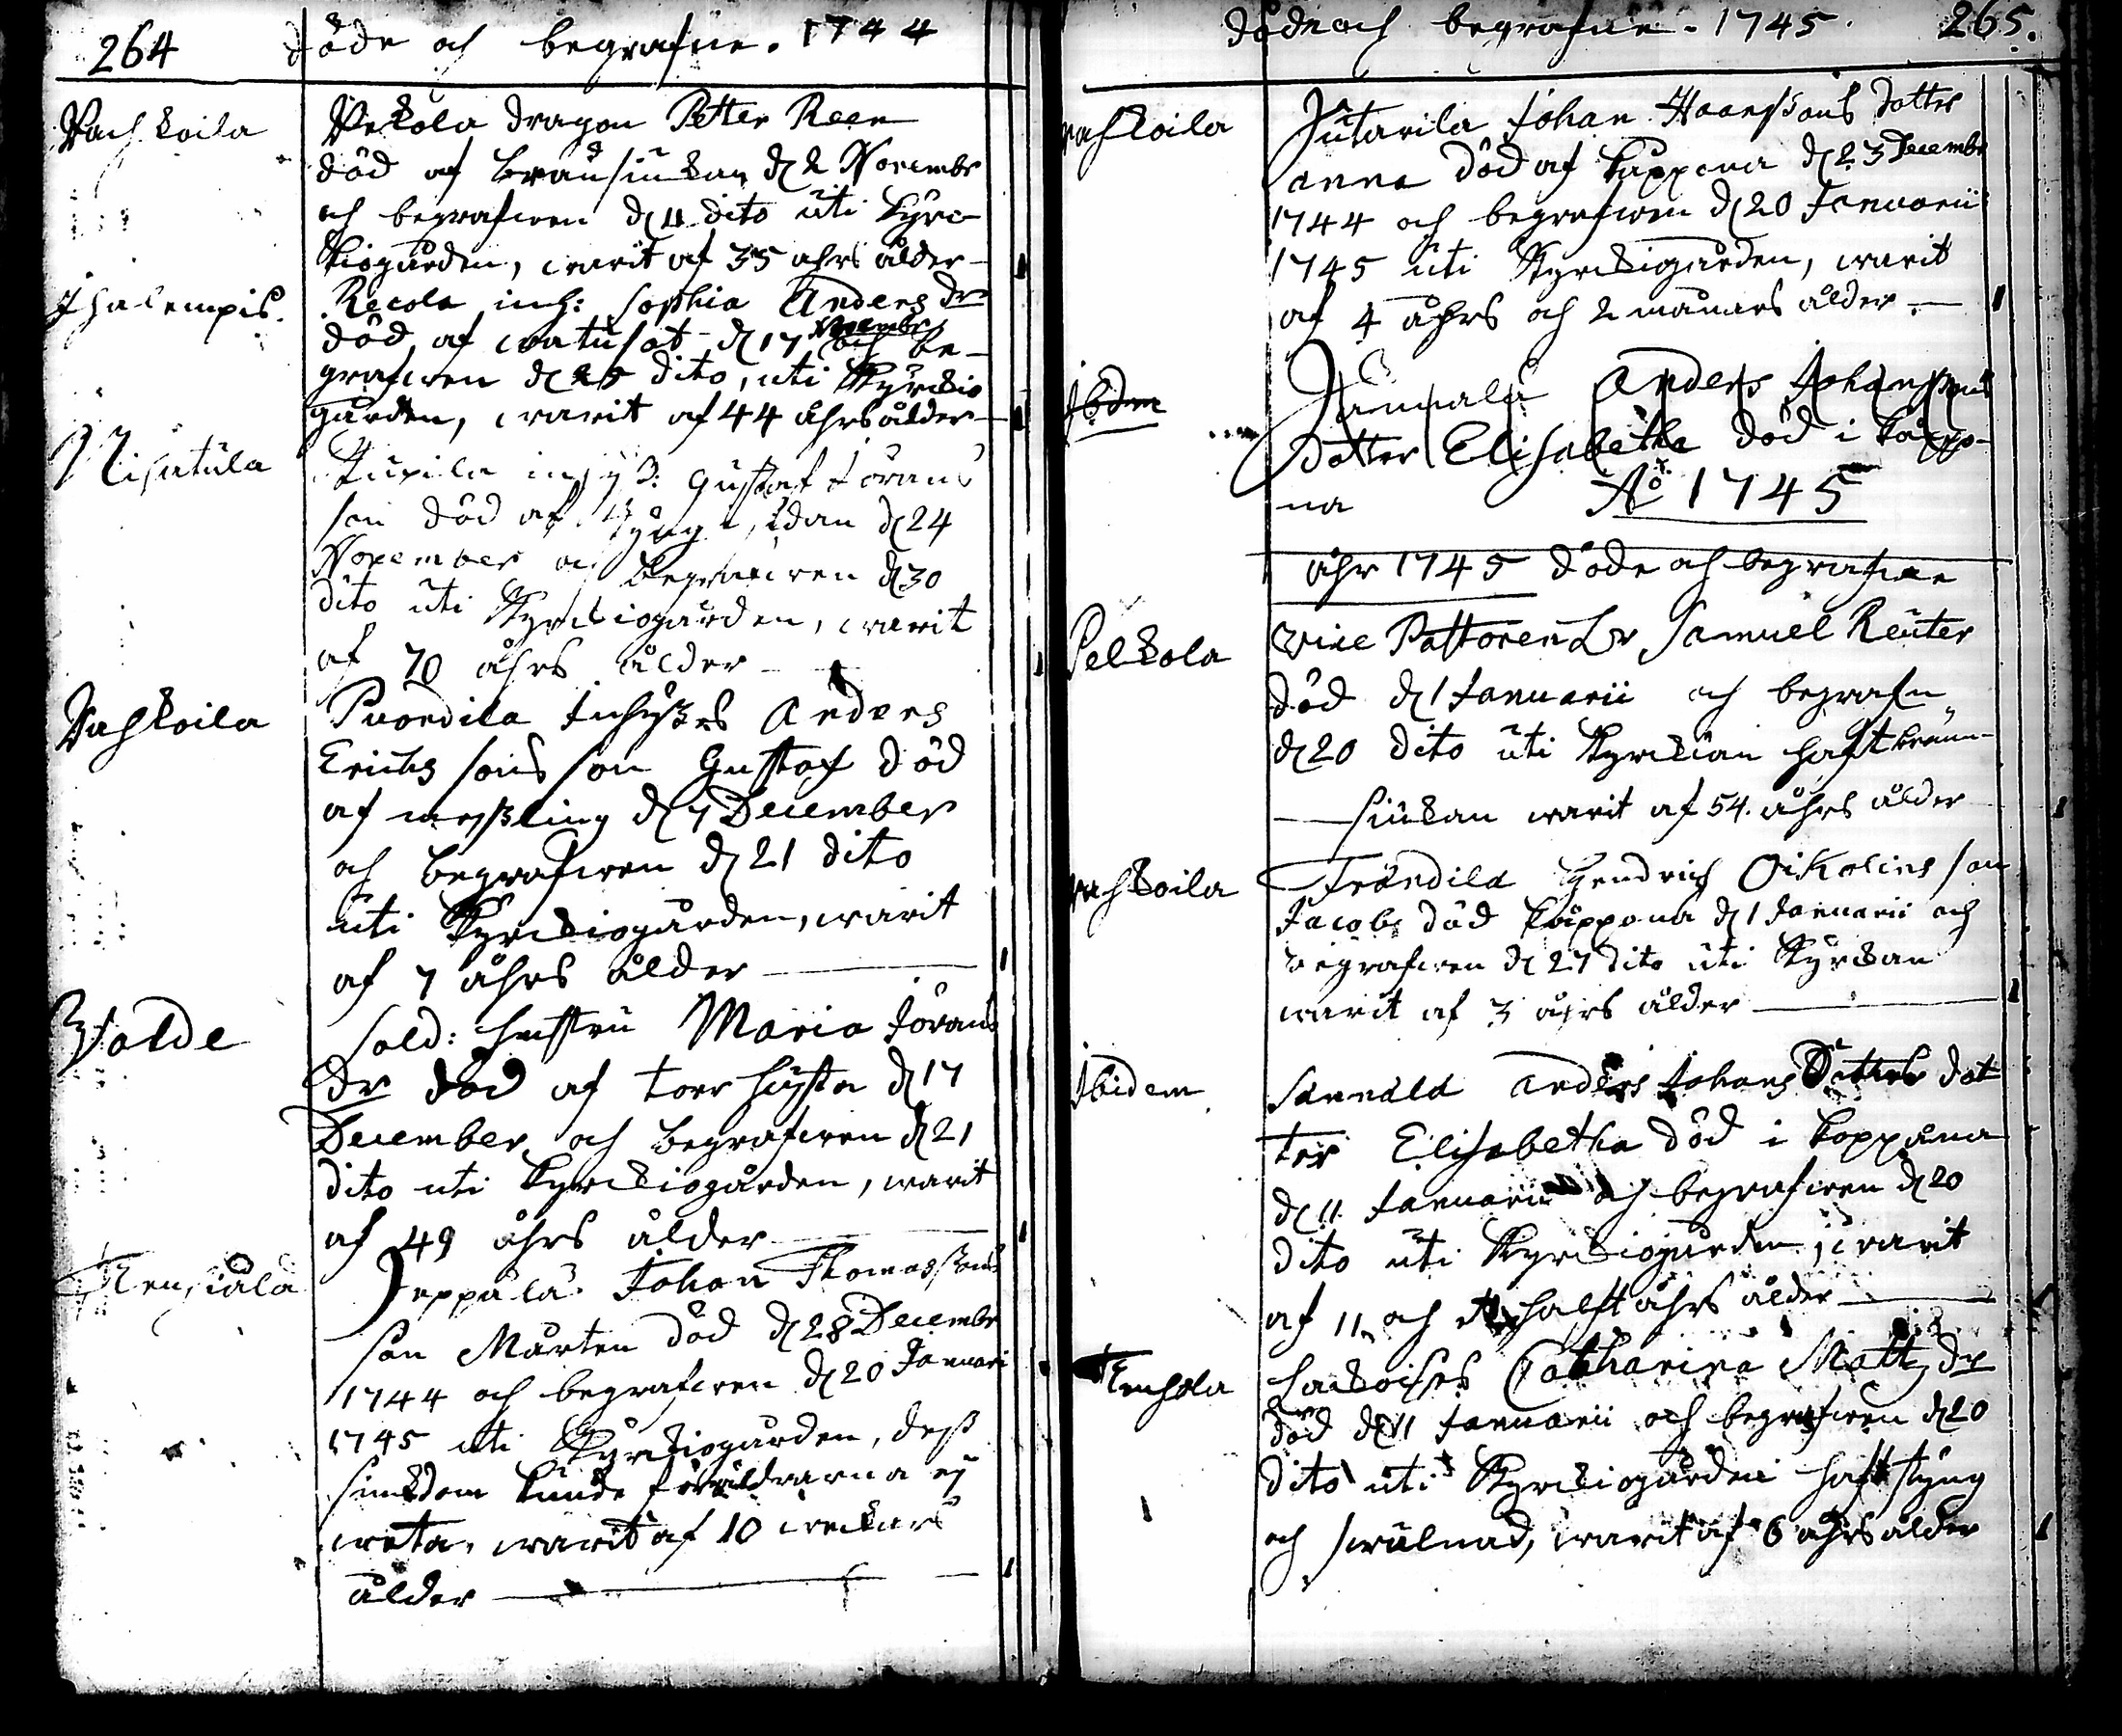 264 döde och begrafne. 1744
Vachkoila
Pekola dragon Petter Reen
död af brånsiukan d 2 Novembr
och begrafwen d 11 dito uti kyrc-
kiogården, warit af 35 åhrs ålder
Ihalempis.
Recola inh: Sophia Anders dr
död af watusot d 17 Novembr och be-
grafwen d 25 dito, uti kyrckio
gården, warit af 44 åhrs ålder
Nisutula
inhys: Gustaf Jörans
son död af d 24
November och begrafwen d 30
dito uti kyrckiogården, warit
af 70 åhrs ålder
Vachkoila
Puordila Inhyses Anders
Erichs sons son Gustaf död
af messling d 7 December
och begrafwen d 21 dito
uti kyrckiogården, warit
af 7 åhrs ålder
Sold: hustru Maria Jörans
dr död af torr husta d 17
December och begrafwen d 21
dito uti kyrckiogården, warit
af 49 åhrs ålder
Jeppälä Johan Thomassons
son Mårten död d 28 Decembr
1744 och begrafwen d 20 Januari
1745 uti kyrckiogården, dess
siukdom kunde föräldrarna ej
weta, warit af 10 weckars
ålder
döde och begrafne. 1745 265.
Vachkoila
Jutarila Johan Haanssons dotter
Anna död af kåppona d 23 Decembr
1744 och begrafwen d 20 Januarii
1745 uti kyrckiogården, warit
af 4 åhrs och 2 månars ålder
Ibdm
Anders Johanssons
dotter Elisabetha död i kåppo-
na Ao 1745
åhr 1745 döde och begrafne
Pelkola
Vice Pastoren Hr Samuel Reuter
död d 1 Januarii och begrafn
d 20 dito uti kyrckian haft brånn-
siukan warit af 54. åhrs ålder
Vachkoila
Frändilä Hendrich Oikolins son
Jacob död kåppona d 1 Januarii och
begrafwen d 27 dito uti kyrckan
warit af 3 åhrs ålder
Ibidem
Anders Johans dot
ter Elisabetha död i koppåna
d 11 Januarii och begrafwen d 20
dito uti kyrckiogården, warit
af 11 och halft åhrs ålder
Catharina Matts dr
död d 11 Januarii och begrafwen d 20
dito uti kyrckiogården haft styng
och swulnad, warit af 6 åhrs ålder